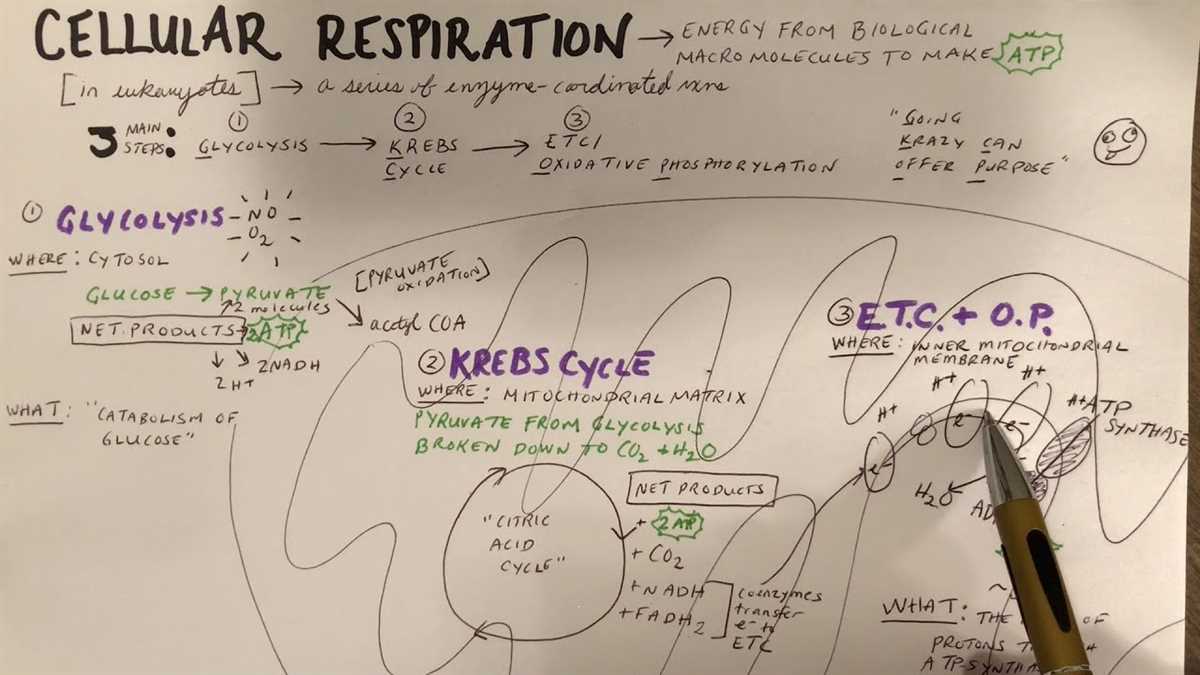 CELLULAR RESPIRATION → ENERGY FROM BIOLOGICAL
MACROMOLECULES TO MAKE ATP
[in eukaryotes] → a series of enzyme-cordinated rxns
3 MAIN STEPS:
① GLYCOLYSIS → ② KREBS CYCLE → ③ ETC/ OXIDATIVE PHOSPHORYLATION
"GOING
KRAZY CAN
OFFER PURPOSE"
① GLYCOLYSIS
NO
O2
WHERE: CYTOSOL
GLUCOSE → PYRUVATE
2 molecules
[PYRUVATE
OXIDATION]
acetyl COA
NET PRODUCTS → 2 ATP
2 H+ 2NADH
WHAT: "CATABOLISM OF
GLUCOSE"
② KREBS CYCLE
WHERE: MITOCHONDRIAL MATRIX
PYRUVATE FROM GLYCOLYSIS
BROKEN DOWN TO CO2 + H2O
"CITRIC
ACID
CYCLE"
NET PRODUCTS
+ 2 ATP
+ CO2
+ NADH
+ FADH2
coenzymes
transfer
e- to
ETC
③ E.T.C. + O.P.
WHERE: INNER MITOCHONDRIAL
MEMBRANE
H+ H+ H+ H+
ATP
SYNTHASE
e- e- e-
H2O
WHAT: THE OF
PROTONS
ATP-SYNTHAS